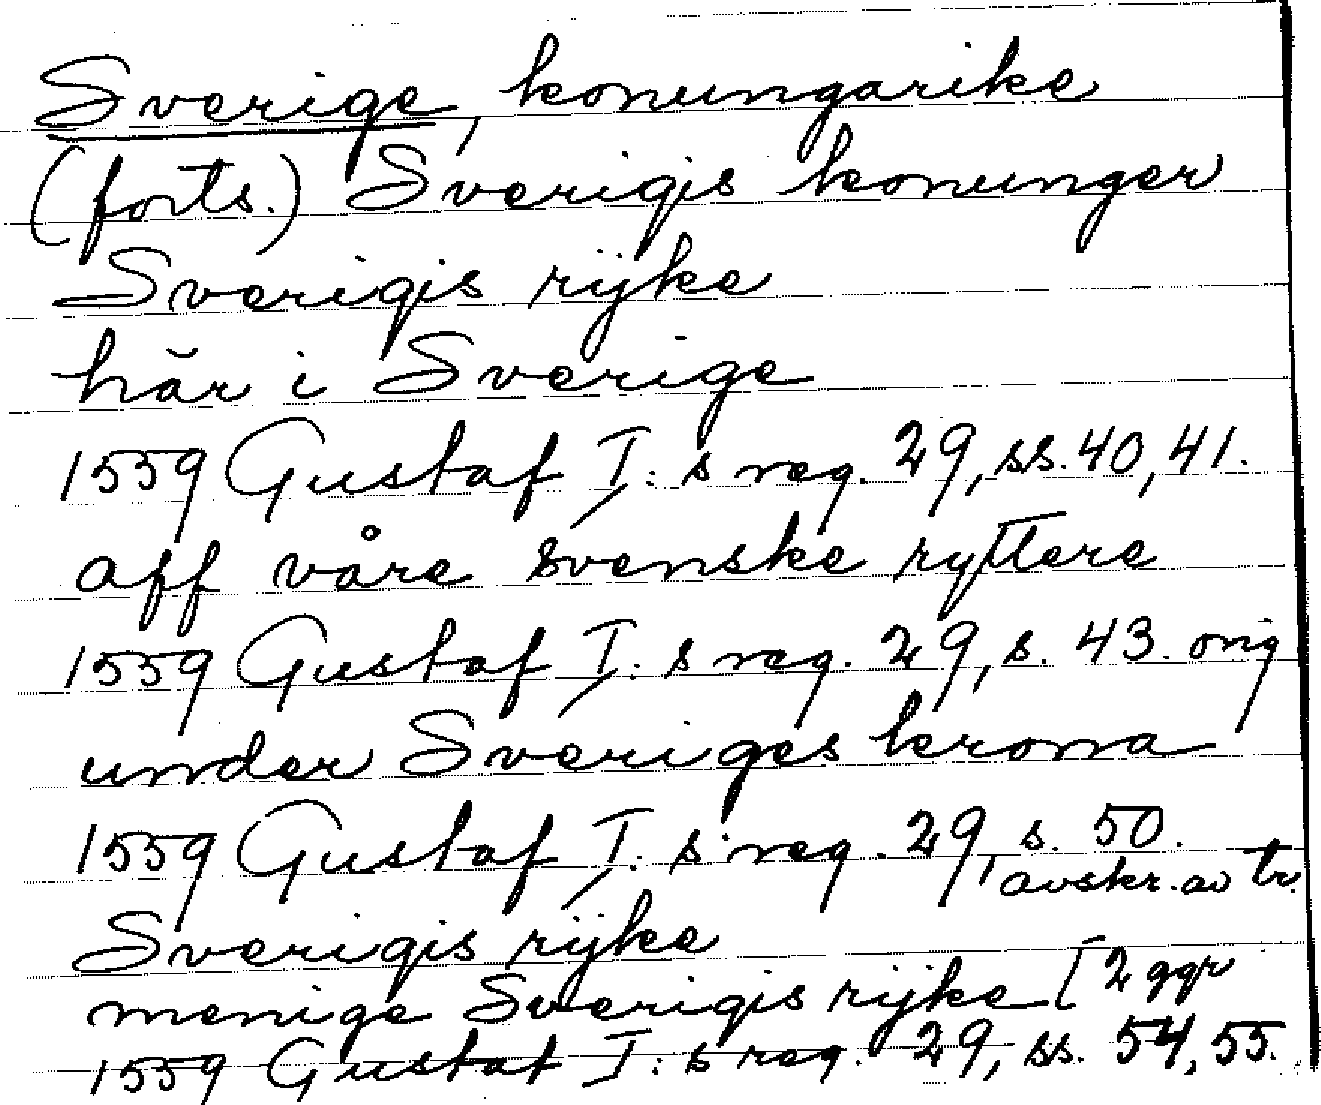 Sverige, konungarike
(forts.) Sverigis konunger
Sverigis rijke
här i Sverige
1559 Gustaf I: s reg. 29, ss. 40, 41.
aff våre svenske ryttere
1559 Gustaf I: s reg. 29, s. 43. orig
under Sveriges krona
1559 Gustaf I: s reg. 29, s. 50.
avskr. av tr.
Sverigis rijke
menige Sverigis rijke [2 ggr
1559 Gustaf I: s reg. 29, ss. 54, 55.